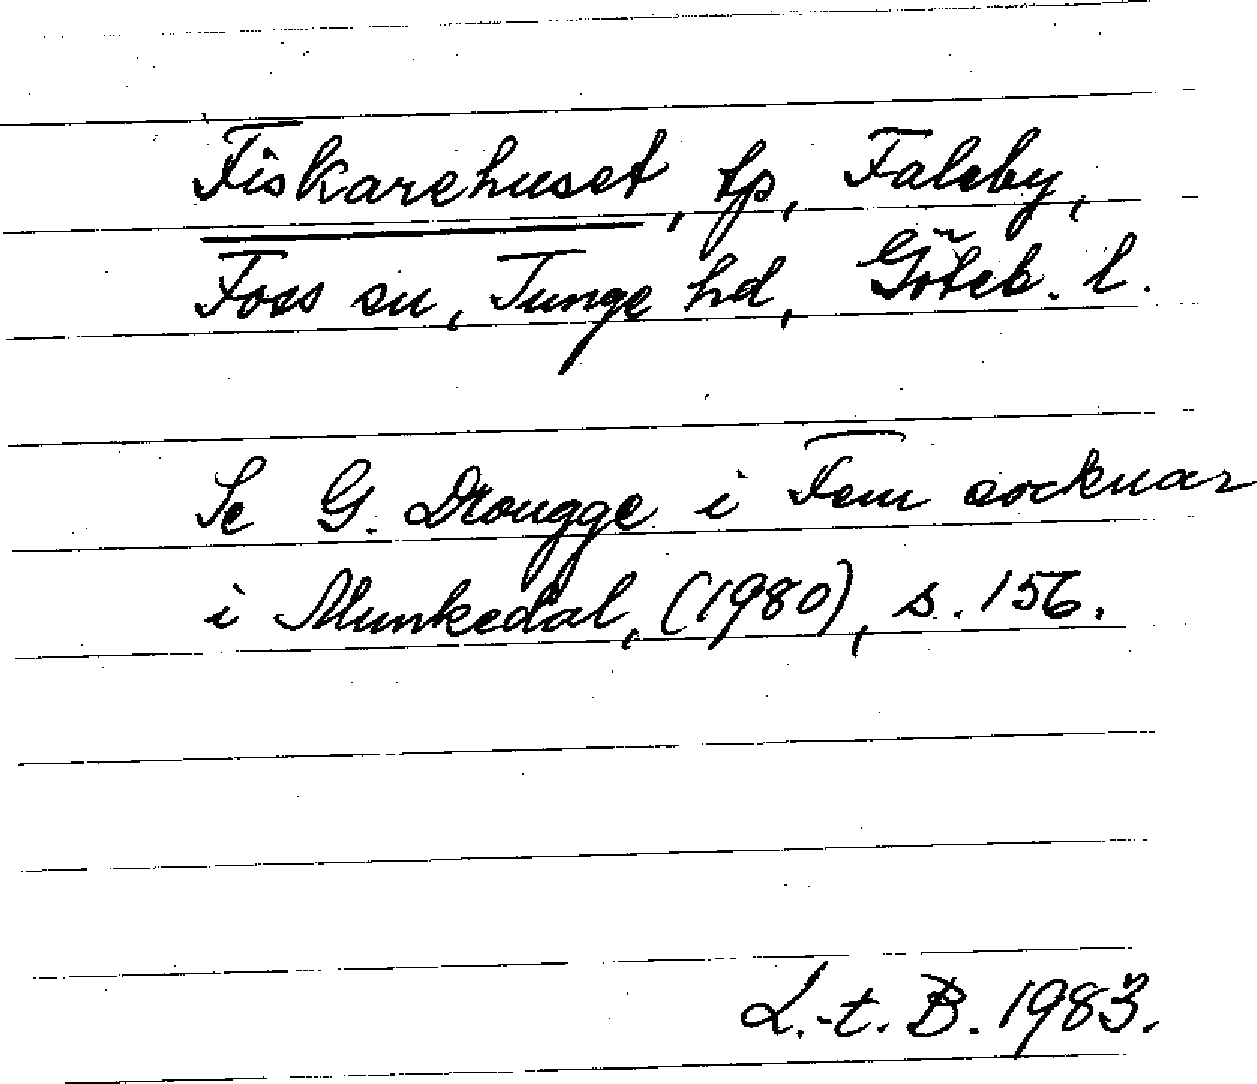 Fiskarehuset, tp, Faleby,
Foss sn, Tunge hd, Göteb. l.
Se G. Drougge i Fem socknar
i Munkedal, (1980), s. 156.
L.-t. B. 1983.